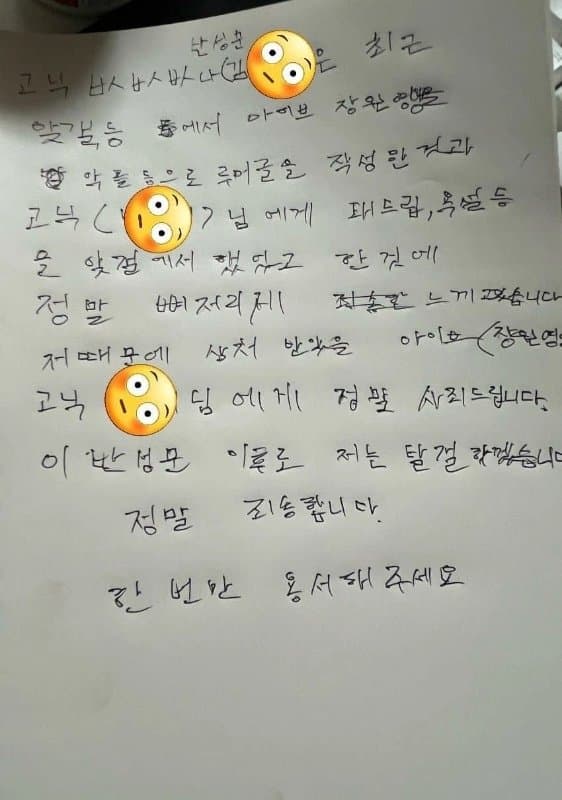 반성문
고닉 ㅂㅅㅂㅅ바나(김 은 최근
앚갤등 에서 아이브 장원영
악플등으로 루머글을 작성한것과
고닉 ( ) 님에게 패드립, 욕설등
을 앚갤에서 했었고 한것에
정말 뼈저리게 느끼고있습니다
저때문에 상처 받았을 아이브 (장원영
고닉 님에게 정말 사죄드립니다.
이 반성문 이후로 저는 탈갤하겠습니다
정말 죄송합니다.
한번만 용서해주세요